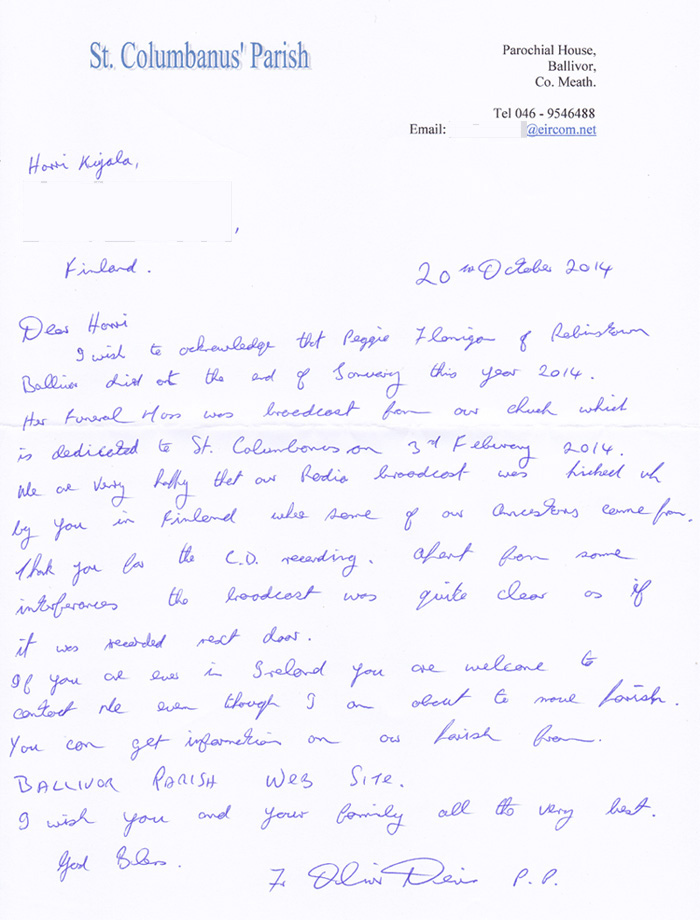 St. Columbanus' Parish
Parochial House,
Ballivor,
Co. Meath.
Tel 046 - 9546488
Email: @eircom.net
Harri Kujala,
,
Finland.
20th October 2014
Dear Harri
I wish to acknowledge that Peggie Flanigan of Robinstown
Ballivor died at the end of January this year 2014.
Her Funeral Mass was broadcast from our church which
is dedicated to St. Columbanus on 3rd February 2014.
We are very happy that our Radio broadcast was picked up
by you in Finland where some of our Ancestors came from.
Thank you for the C.D. recording. Apart from some
interferences the broadcast was quite clear as if
it was recorded next door.
If you are ever in Ireland you are welcome to
contact me even though I am about to move Parish.
You can get information on our Parish from.
BALLIVOR PARISH WEB SITE.
I wish you and your family all the very best.
God Bless.
Fr Oliver P.P.